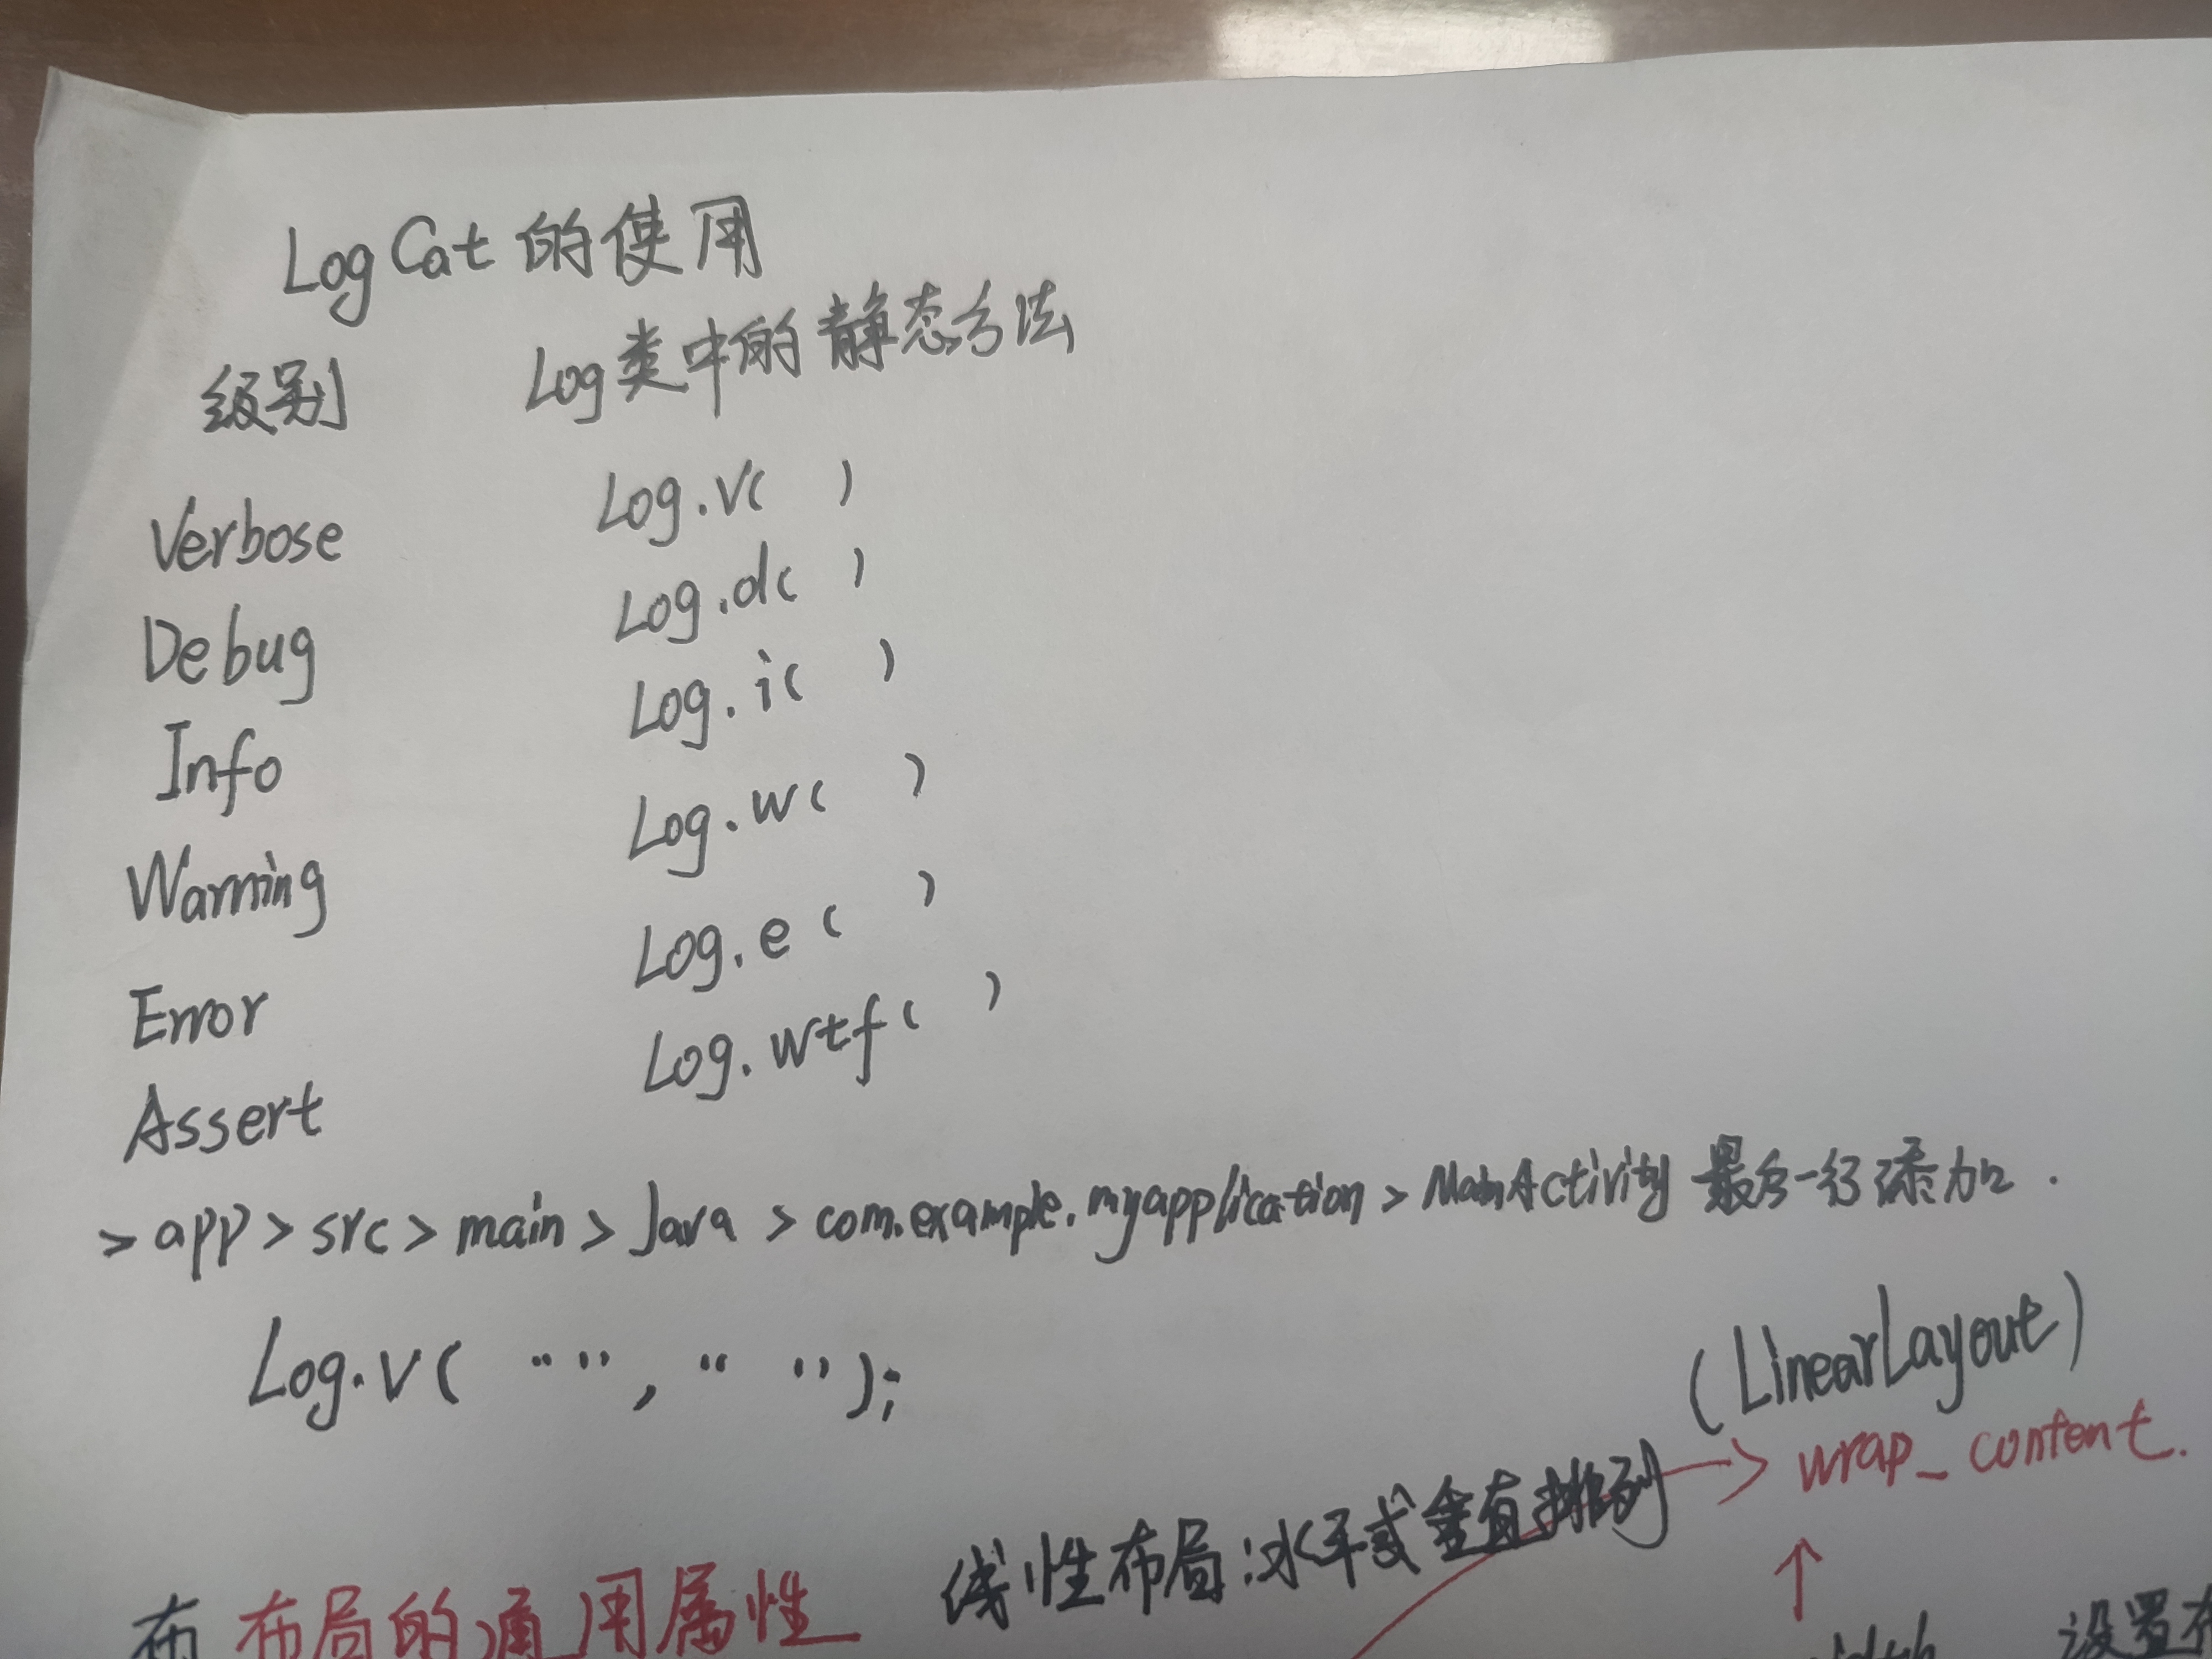 LogCat 的使用
级别 Log类中的静态方法
Verbose Log.v( )
Debug Log.d( )
Info Log.i( )
Warning Log.w( )
Error Log.e( )
Assert Log.wtf( )
> app > src > main > Java > com.example.myapplication > MainActivity 最后一行添加.
Log.v( "", " ");
(LinearLayout)
线性布局:水平或垂直排列 → wrap_content.
↑
布 布局的通用属性
设置布